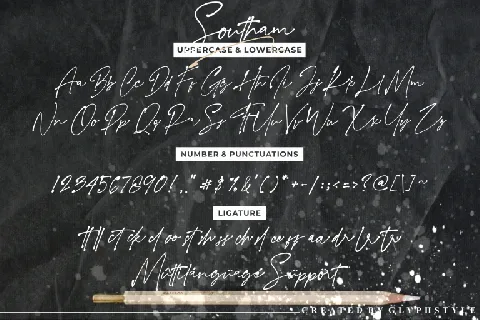 Southam
UPPERCASE & LOWERCASE
Aa Bb Cc Dd Ff Gg Hh Ii Jj Kk Ll Mm
Nn Oo Pp Qq Rr Ss Tt Uu Vv Ww Xx Yy Zz
NUMBER & PUNCTUATIONS
1234567890!.,"#$%&'()*+-/:;<=>?@[\]~
LIGATURE
Multilanguage Support
CREATED BY GLYPHSTYLE